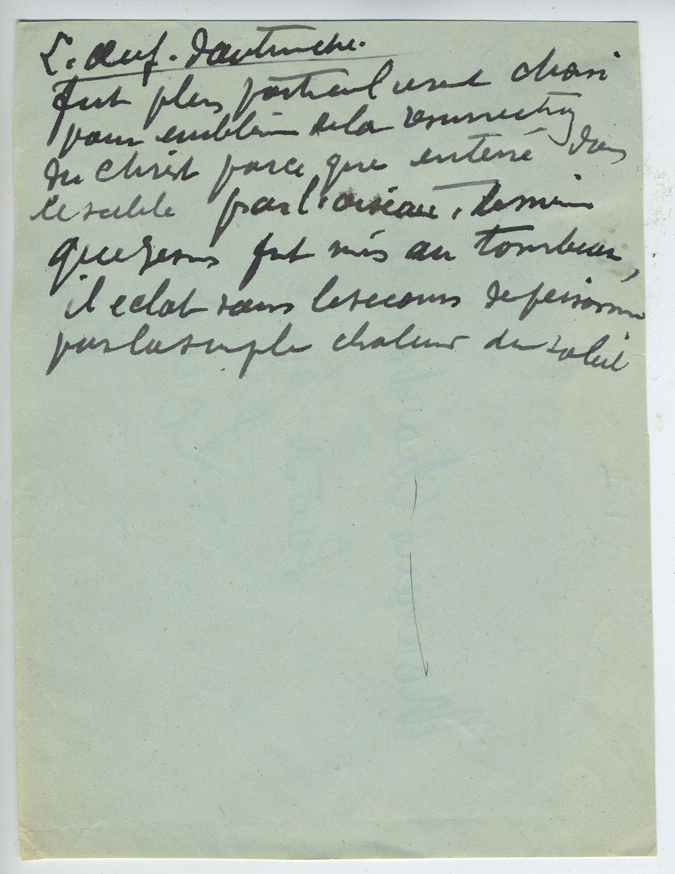 L'œuf d'autruche.
fut plus particulierement choisi
pour emblème de la resurrection
du Christ parce que enterré dans
le sable par l'oiseau, de même
que Jesus fut mis au tombeau,
il eclot sans le secours de personne
par la simple chaleur du soleil